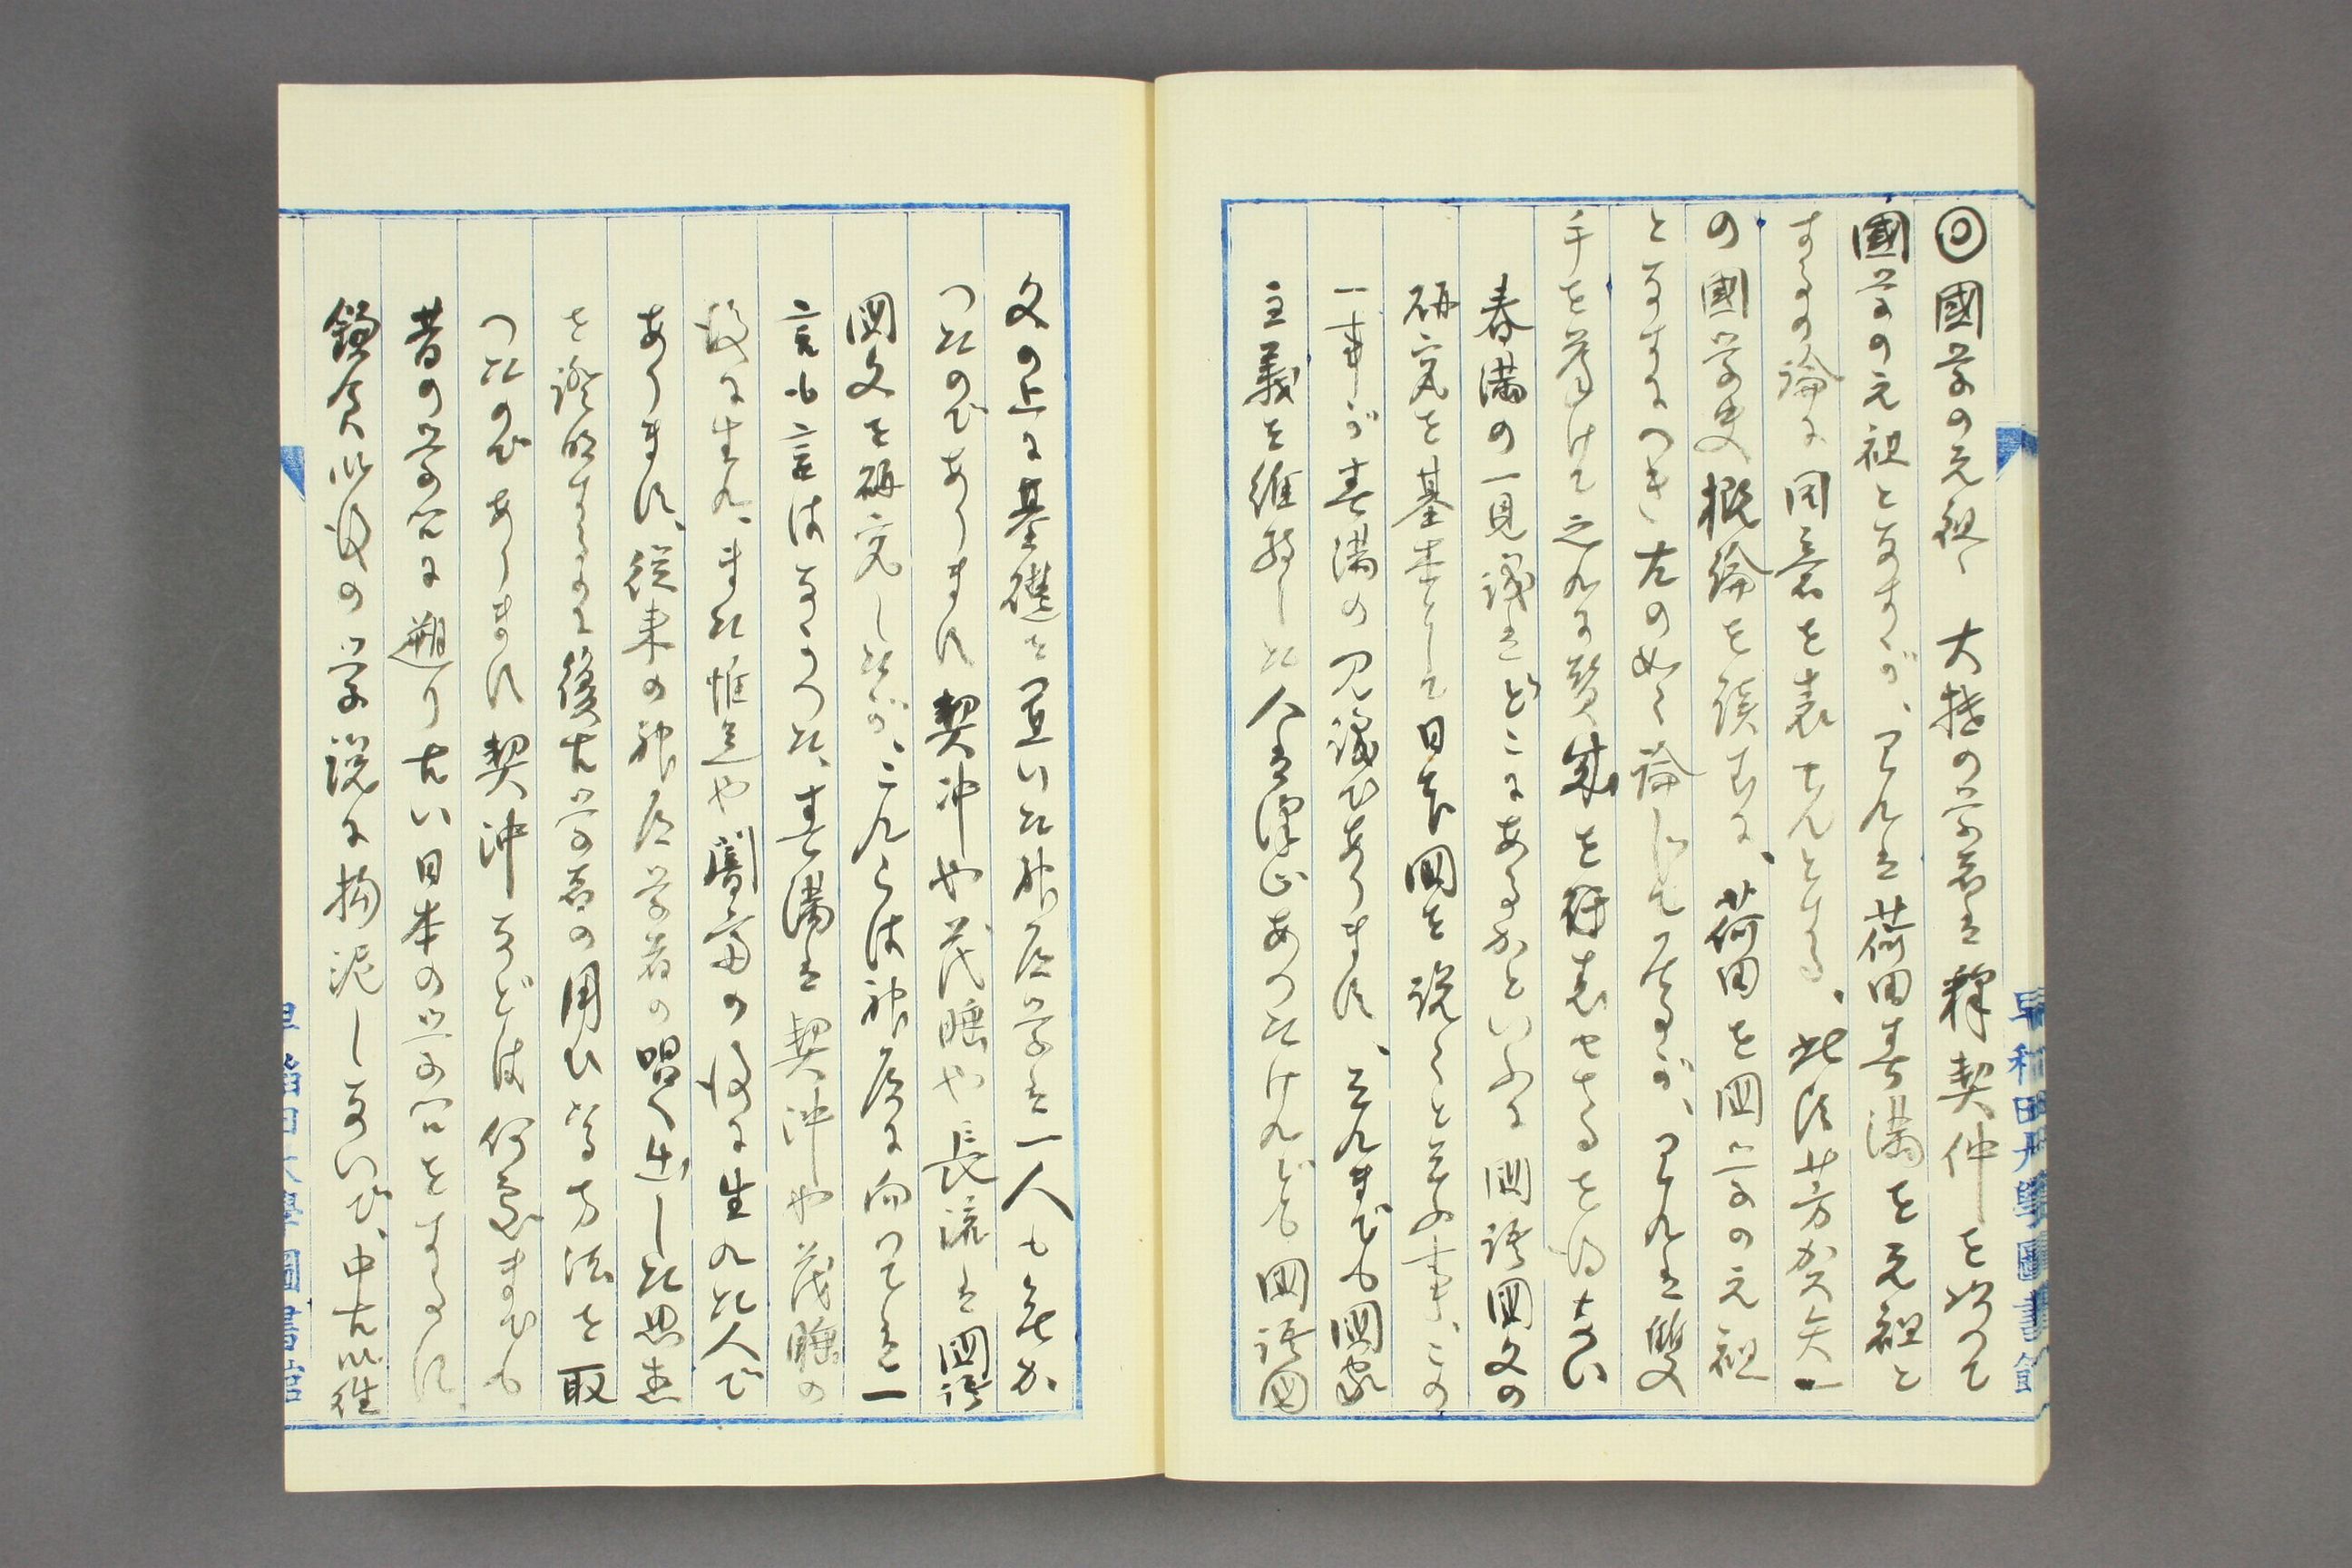 ◎國学の元祖 大抵の学者は釋契仲を以て
國学の元祖となすが、これは荷田春満を元祖と
するの論に同意を表せんとする、此頃芳賀矢一
の國学史概論を読むに、荷田を国学の元祖
となすにつき左の如く論じて居るが、これは雙
手を挙げて之れに賛成を表せざるを得ない
春満の一見識はどこにあるかといふに国語国文の
研究を基本として日本国を説くと云ふ事、この
一事が春満の見識であります、これまでも国家
主義を維持した人は沢山あつたけれども国語国
文の上に基礎を置いた神道学は一人も無か
つたのであります契沖や茂睡や長流は国語
国文を研究したが、これらは神道に向つては一
言も言はなかつた、春満は契沖や茂睡の
後に生れ、また惟足や闇斎の後に生れた人で
あります、従来の神道学者の唱へ出した思想
を證明するに復古学者の用ひたる方法を取
つたのであります契沖などは何処までも
昔の学問に遡り古い日本の学問をするに
鎌倉以後の学説に拘泥しないで、中古以往
早稲田大學圖書館